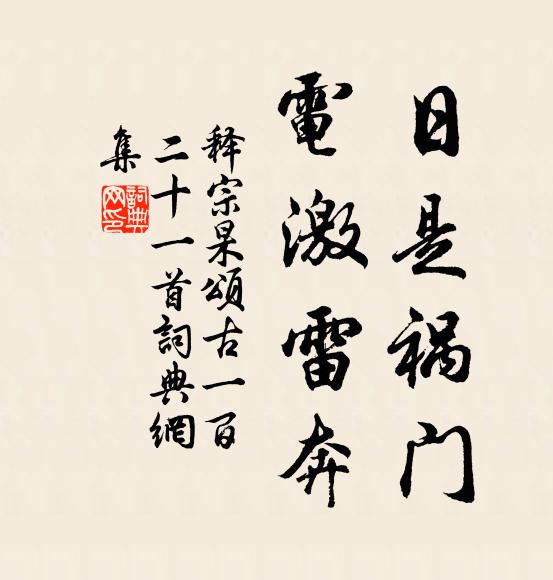 日是祸门
電激雷奔
释宗杲頌古一百
二十一首詞典網
集
詞典网印